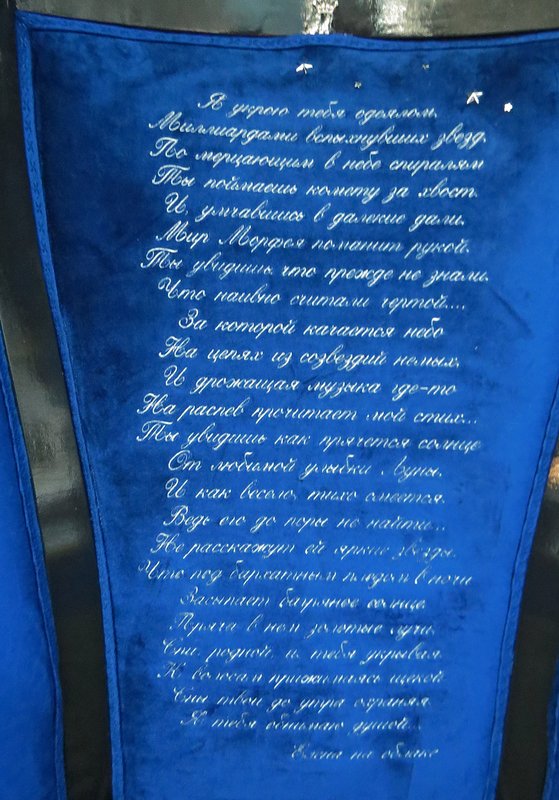 Я укрою тебя одеялом.
Миллиардами вспыхнувших звезд.
По мерцающим в небе спиралям
Ты поймаешь комету за хвост.
И, умчавшись в далекие дали.
Мир Морфея поманит рукой.
Ты увидишь что прежде не знали.
Что наивно считали чертой....
За которой качается небо
На цепях из созвездий немых.
И дрожащая музыка где-то
На распев прочитает мой стих...
Ты увидишь как прячется солнце
От любимой улыбки Луны.
И как весело, тихо смеется.
Ведь его до поры не найти...
Не расскажут ей яркие звезды.
Что под бархатным пледом в ночи
Засыпает багряное солнце.
Пряча в нем золотые лучи.
Спи, родной, и тебя укрывая.
К волосам прижимаясь щекой.
Сны твои до утра охраняя
Я тебя обнимаю душой...
Елена на облаке